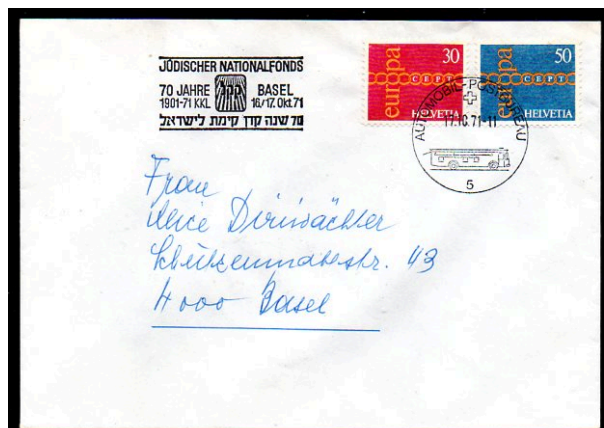 JÜDISCHER NATIONALFONDS
70 JAHRE BASEL
1901-71 KKL 16/17. Okt. 71
70 שנה קרן קימת לישראל
europa 30
CEPT
HELVETIA
europa 50
CEPT
HELVETIA
AUTOMOBIL-POSTBUREAU
17.10.71-11
5
Frau
Alice Dirwächter
Schützenmattstr. 43
4000 Basel